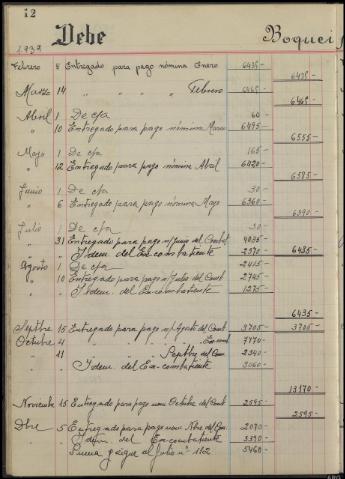 12
Debe Boquei
1939
Febrero 8 Entregado para pago nómina Enero 6475-
6475-
Marzo 14 " " " " Febrero 6465-
6465-
Abril 1 De c/a 60-
" 10 Entregado para pago nómina Marzo 6495-
6555-
Mayo 1 De c/a 165-
" 12 Entregado para pago nómina Abril 6420-
6575-
Junio 1 De c/a 30-
" 6 Entregado para pago nómina Mayo 6360-
6390-
Julio 1 De c/a 30-
" 31 Entregado para pago n/ Junio del Combat 4035-
" Idem del Excombatiente 2370- 6435-
Agosto 1 De c/a 2415-
" 10 Entregado para pago n/ Julio del Comb 2745-
" Idem del Excombatiente 1275-
6435-
Septbre 15 Entregado para pago n/ Agosto del Comb 3705- 3705-
Octubre 4 " " " " 7770-
" 11 " " " Septbre del Com 2340-
" Idem del Excombatiente 3060-
13170-
Noviembre 15 Entregado para pago Octubre del Comb 2595-
2595-
Dbre 5 Entregado para pago Nbre del Com 2070-
Idem del Excombatiente 3390-
Suma y sigue al folio nº 112 5460-